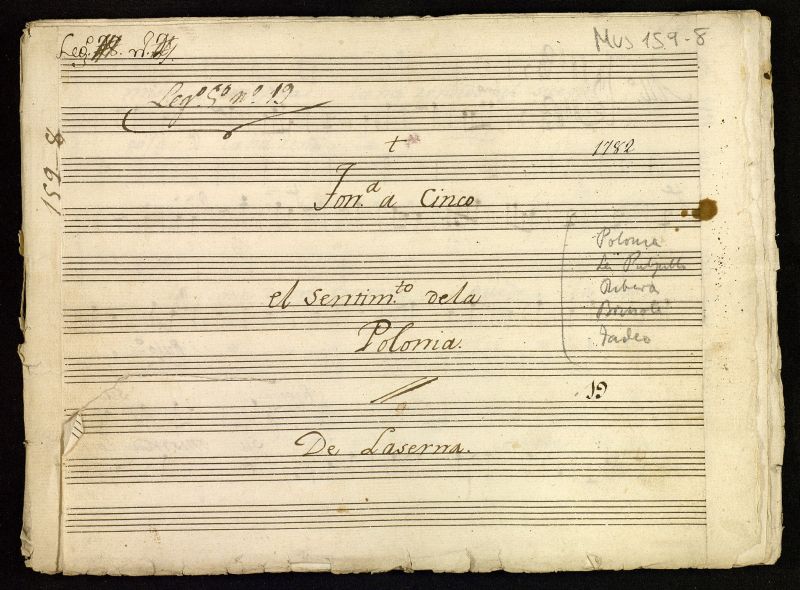 Mus 159-8
Leg.º nº
Leg.º 5º nº 19
159-8
1782
Ton.ª a Cinco
Polonia
La Pulpillo
Ribera
Briñoli
Tadeo
el sentim.to dela
Polonia.
19
De Laserna.